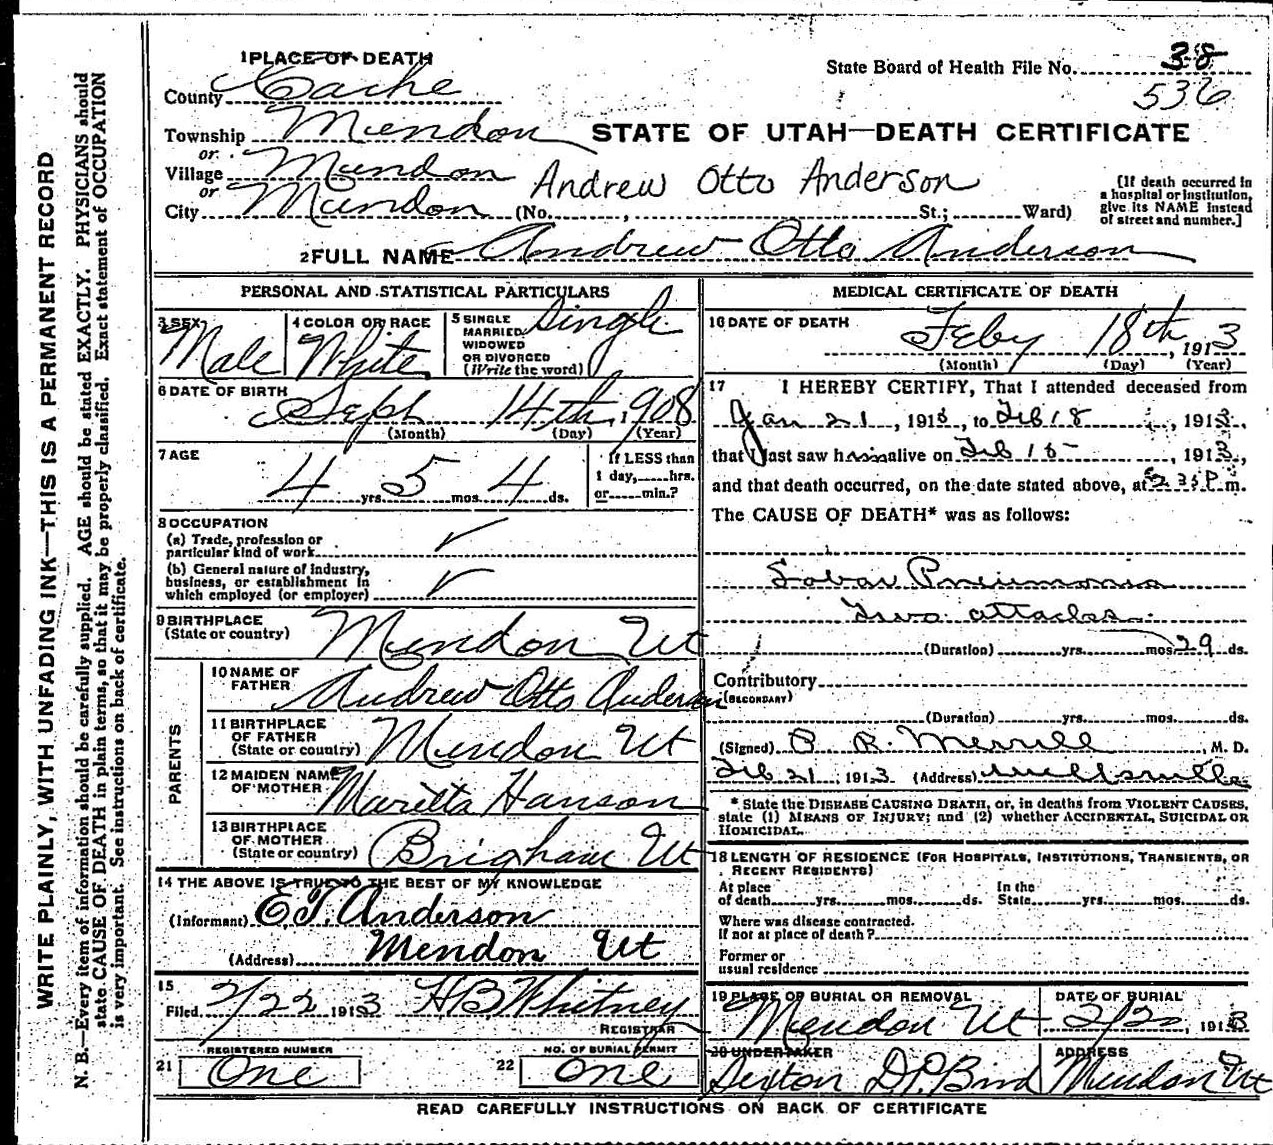 WRITE PLAINLY, WITH UNFADING INK—THIS IS A PERMANENT RECORD
N. B.—Every item of information should be carefully supplied. AGE should be stated EXACTLY. PHYSICIANS should
state CAUSE OF DEATH in plain terms, so that it may be properly classified. Exact statement of OCCUPATION
is very important. See instructions on back of certificate.
1 PLACE OF DEATH
County Cache
Township Mendon
or
Village Mendon
or
City Mendon (No. , St.; Ward)
State Board of Health File No. 38
536
STATE OF UTAH—DEATH CERTIFICATE
Andrew Otto Anderson
[If death occurred in
a hospital or institution,
give its NAME instead
of street and number.]
2 FULL NAME Andrew Otto Anderson
PERSONAL AND STATISTICAL PARTICULARS
3 SEX
Male
4 COLOR OR RACE
White
5 SINGLE
MARRIED
WIDOWED
OR DIVORCED
(Write the word)
Single
6 DATE OF BIRTH
Sept 14th, 1908
(Month) (Day) (Year)
7 AGE
4 yrs. 5 mos. 4 ds.
If LESS than
1 day, hrs.
or min.?
8 OCCUPATION
(a) Trade, profession or
particular kind of work
(b) General nature of industry,
business, or establishment in
which employed (or employer)
9 BIRTHPLACE
(State or country) Mendon Ut
PARENTS
10 NAME OF
FATHER Andrew Otto Anderson
11 BIRTHPLACE
OF FATHER
(State or country) Mendon Ut
12 MAIDEN NAME
OF MOTHER Maritta Hanson
13 BIRTHPLACE
OF MOTHER
(State or country) Brigham Ut
14 THE ABOVE IS TRUE TO THE BEST OF MY KNOWLEDGE
(Informant) E T. Anderson
(Address) Mendon Ut
15
Filed 2/22 1913 H B Whitney
REGISTRAR
21 REGISTERED NUMBER
One
22 NO. OF BURIAL PERMIT
One
MEDICAL CERTIFICATE OF DEATH
16 DATE OF DEATH
Feby 18th, 1913
(Month) (Day) (Year)
17 I HEREBY CERTIFY, That I attended deceased from
Jan 21, 1913, to Feb 18, 1913,
that I last saw him alive on Feb 15, 1913,
and that death occurred, on the date stated above, at P. m.
The CAUSE OF DEATH* was as follows:
Lobar Pneumonia
Two attacks.
(Duration) yrs. mos. 29 ds.
Contributory
(SECONDARY)
(Duration) yrs. mos. ds.
(Signed) R. Merrill, M. D.
Feb 21, 1913 (Address) Wellsville
* State the DISEASE CAUSING DEATH, or, in deaths from VIOLENT CAUSES,
state (1) MEANS OF INJURY; and (2) whether ACCIDENTAL, SUICIDAL OR
HOMICIDAL.
18 LENGTH OF RESIDENCE (FOR HOSPITALS, INSTITUTIONS, TRANSIENTS, OR
RECENT RESIDENTS)
At place
of death yrs. mos. ds.
In the
State yrs. mos. ds.
Where was disease contracted.
If not at place of death?
Former or
usual residence
19 PLACE OF BURIAL OR REMOVAL
Mendon Ut
DATE OF BURIAL
2/20, 1913
20 UNDERTAKER
Sexton D.P. Bird
ADDRESS
Mendon Ut
READ CAREFULLY INSTRUCTIONS ON BACK OF CERTIFICATE